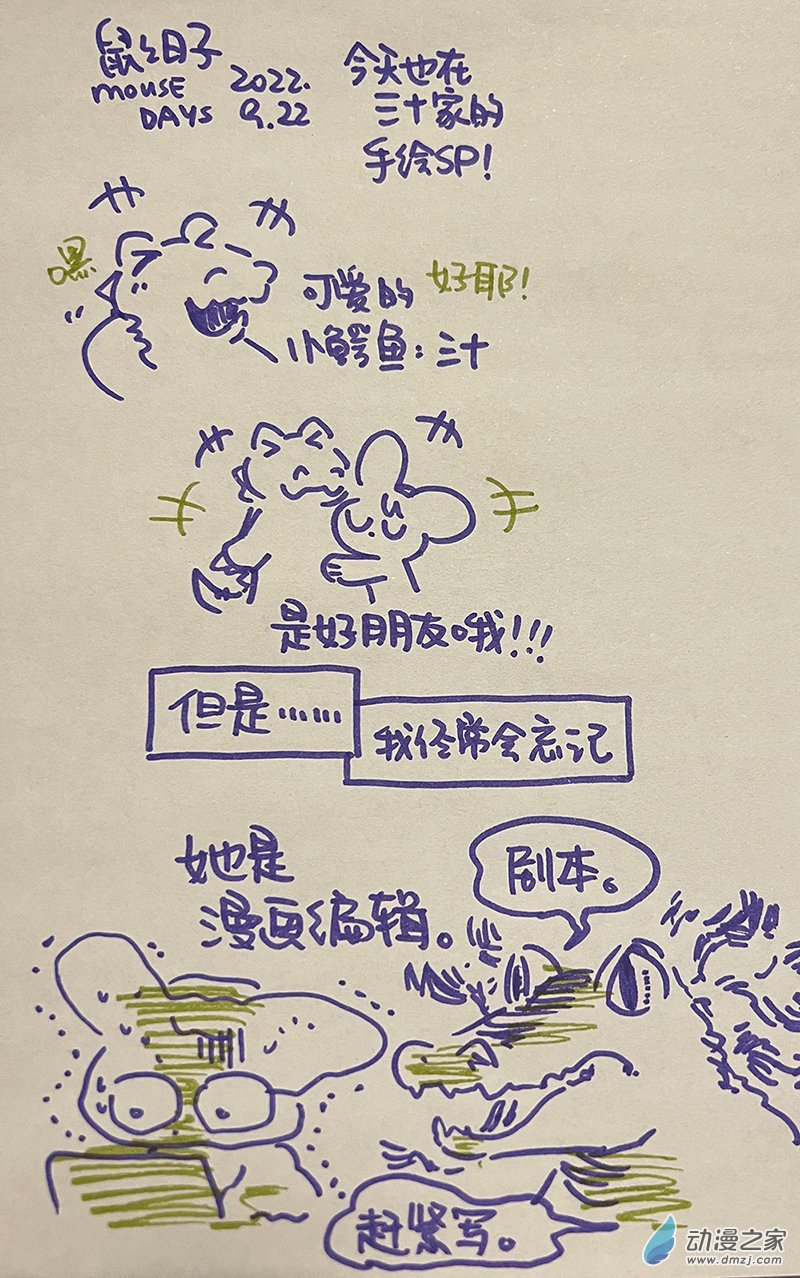 鼠鼠日子
MOUSE
DAYS
2022.
9.22
今天也在
三十家的
手绘SP!
嘿
可爱的
小鳄鱼:三十
好耶!
是好朋友哦!!!
但是……
我经常会忘记
她是
漫画编辑。
剧本。
赶紧写。
动漫之家
www.dmzj.com